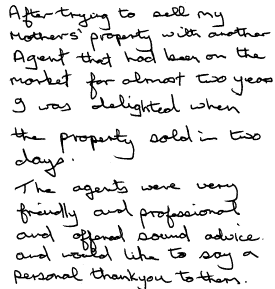 After trying to sell my
Mothers' property with another
Agent that had been on the
market for almost two years
I was delighted when
the property sold in two
days.
The agents were very
friendly and professional
and offered sound advice.
and would like to say a
personal thankyou to them.